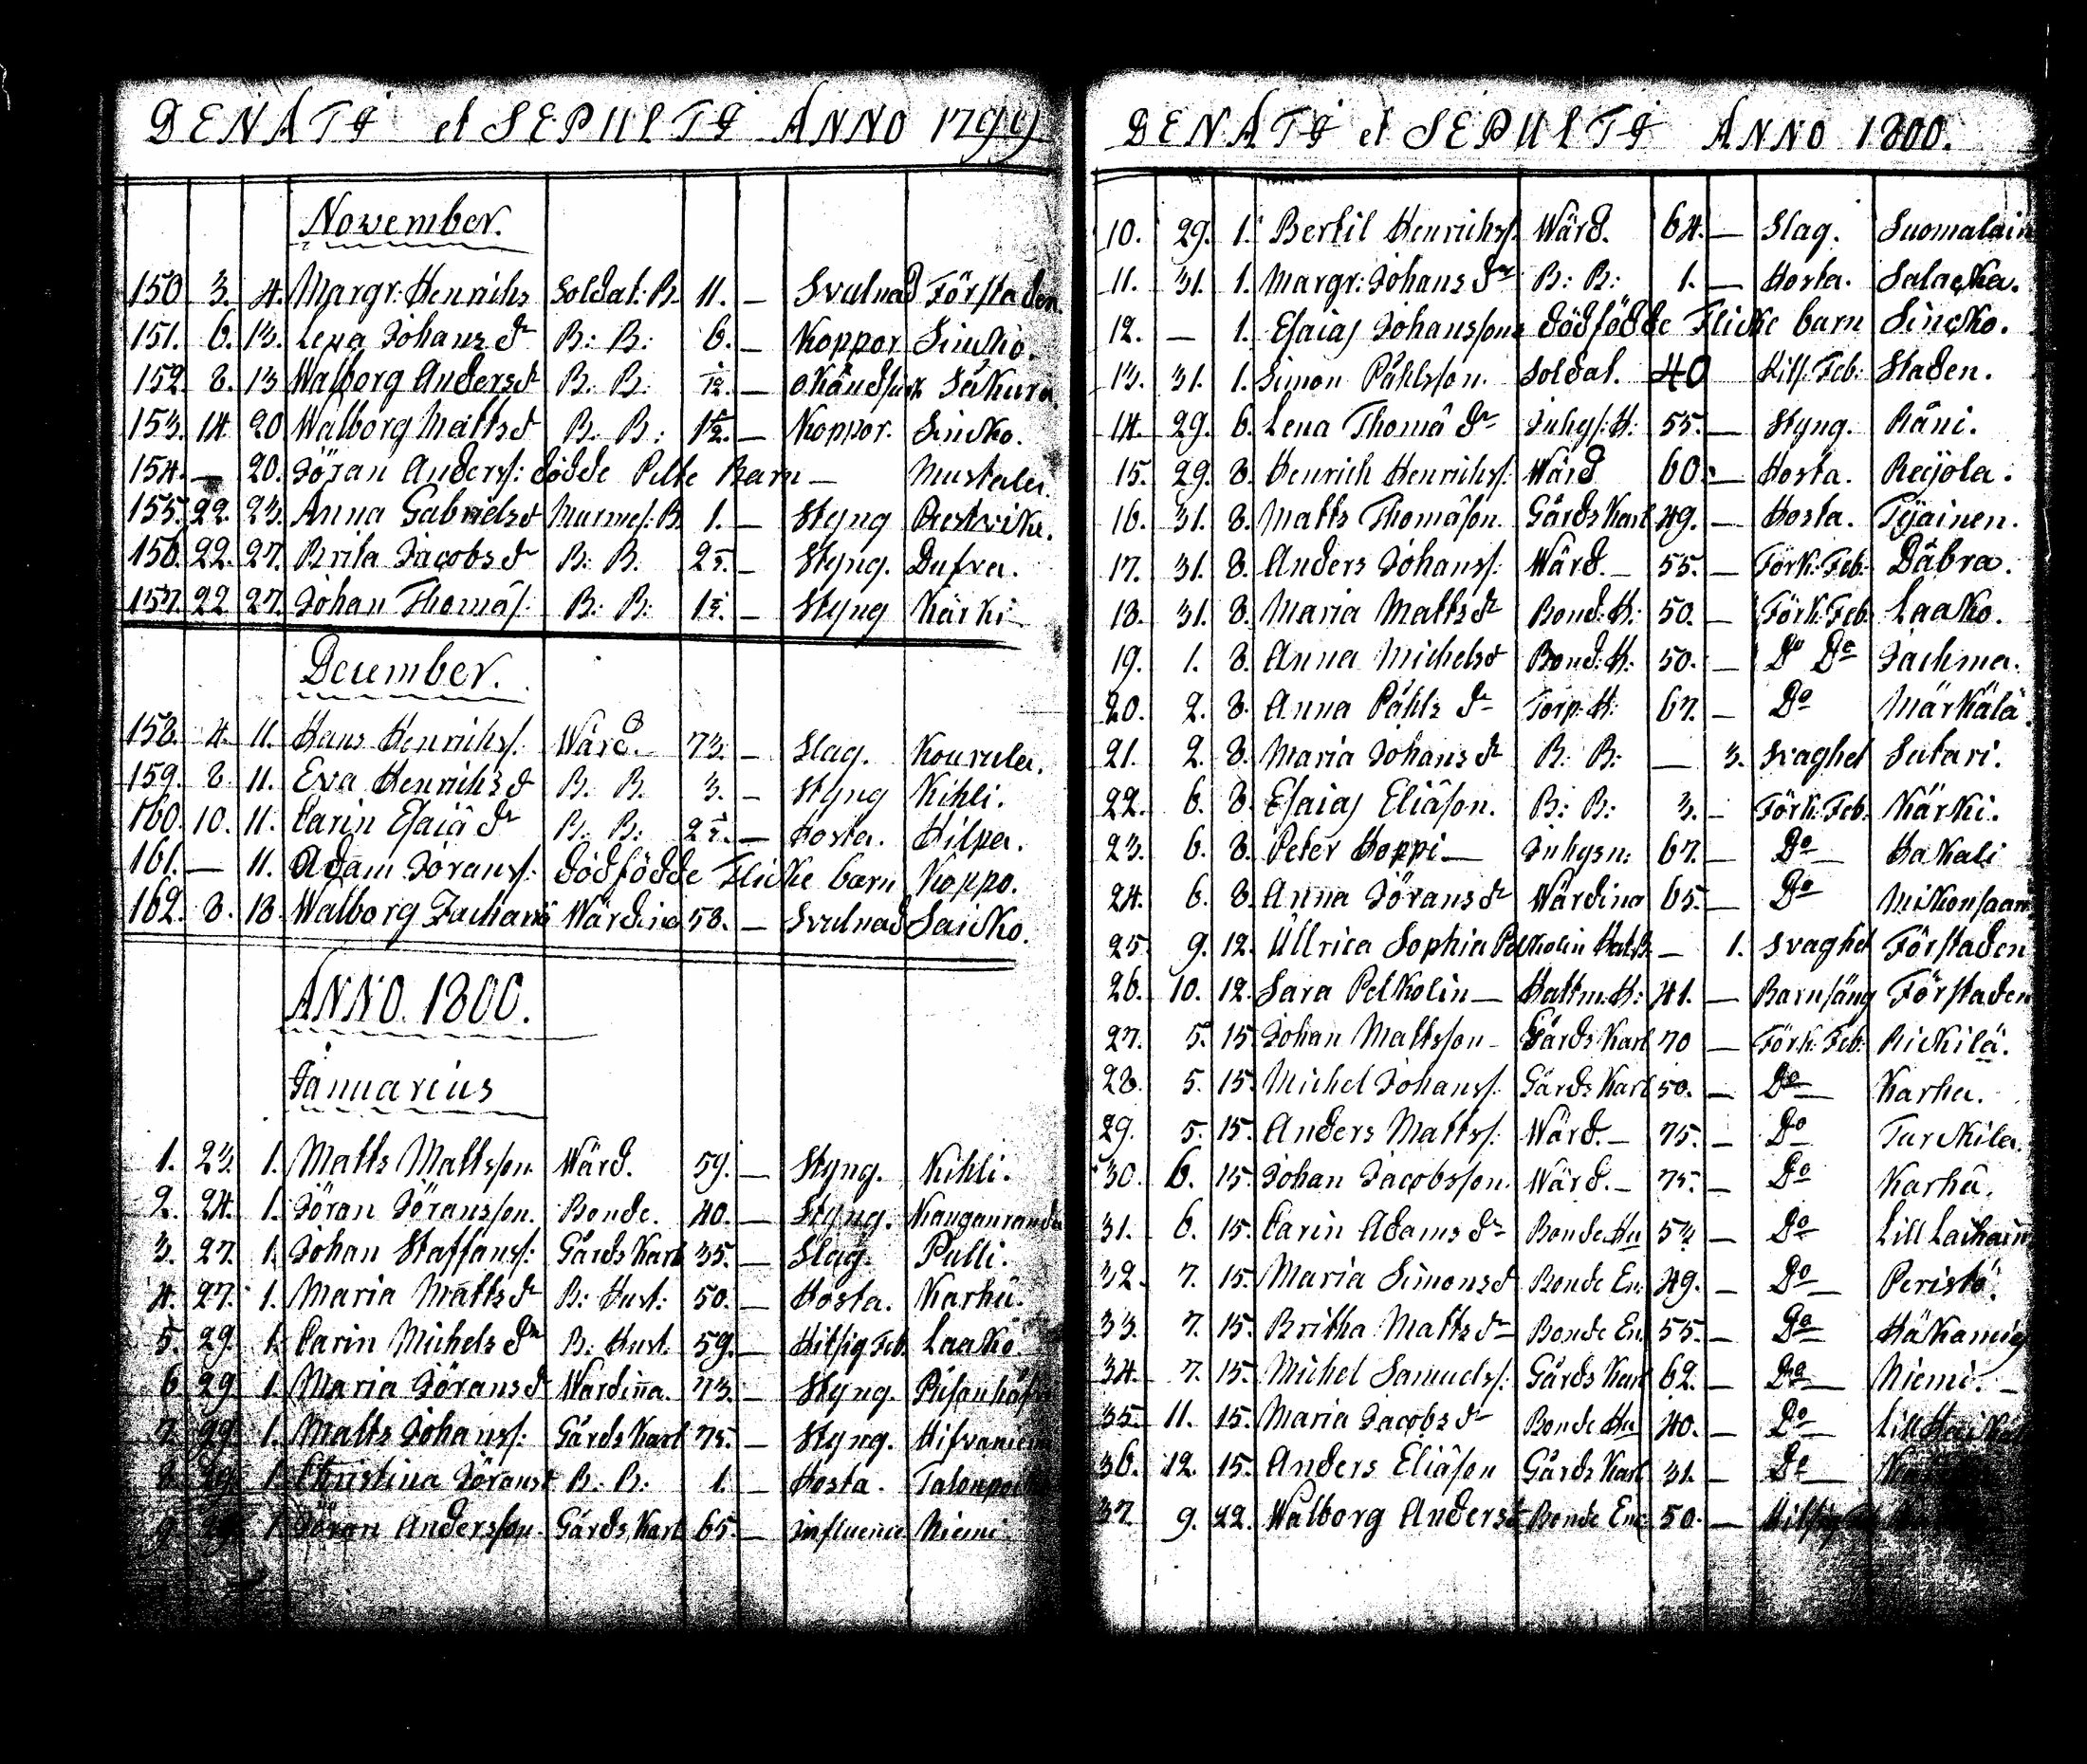 DENATI et SEPULTI ANNO 1799
November.
150 3. 4. Margr: Henrichs Soldat: B. 11. — Svulnad Förstaden.
151. 6. 13. Lena Johans dr B: B: 6. — Koppor Sincko.
152. 8. 13 Walborg Andersdr B. B: 1/12. — Okändsjuk Säkura
153. 14 20 Walborg Mattsd B. B: 1 1/2. — Koppor. Sincko.
154. — 20. Jöran Anders: dödde Pilte Barn — Mustala.
155. 22. 23. Anna Gabrielsd B. 1. — Styng
156. 22. 27. Brita Jacobsdr B: B. — Styng. Dufva.
157. 22 27. Johan Thomäs: B: B: — Styng Kärki
December.
158. 4. 11. Hans Henrichs: Wärd. 73. — Slag. Kourula.
159. 8. 11. Eva Henrichsd B. B. 3. — Styng Kihli.
160. 10. 11. Carin Esaiä dr B. B: — Hosta. Hilpa.
161. — 11. Adam Jörans: dödfödde Flicke barn Koppo.
162. 8. 18. Walborg Zachariä Wärdina 58. — Svulnad Saicko.
ANNO. 1800.
Januarius
1. 23. 1. Matts Mattsson Wärd. 59. — Styng. Kihli.
2. 24. 1. Jöran Göransson. Bonde. 40. — Styng. Kanganranda
3. 27. 1. Johan Staffans: Gårds Karl 35. — Slag. Pulli.
4. 27. 1. Maria Mattsdr B: Hust: 50. — Hosta. Karhu.
5. 29. 1. Carin Michels dr B: Hust. 59. — Hitsig Feb. Laako.
6 29. 1. Maria Jöransd Wärdinna. 73. — Styng.
7. 29. 1. Matts Johans: Gårds Karl 75. — Styng. Hifvaniemi
8. 29. 1. Christina Jöransd B. B: 1. — Hosta.
9 29. 1. Jöran Andersson. Gårds Karl 65. — influence Niemi
DENATI et SEPULTI ANNO 1800.
10. 29. 1. Bertil Henrichs: Wärd. 64. — Slag. Suomalain
11. 31. 1. Margr: Johans dr B: B: 1. — Hosta. Salacka.
12. — 1. Esaias Johanssons dödfödde Flicke barn Sincko.
13. 31. 1. Simon Påhlsson. Soldat. 40 Hits. Feb: Staden.
14. 29. 6. Lena Thomä dr Inhys: H: 55. — Styng. Räni.
15. 29. 8. Henrich Henrichs: Wärd 60. — Hosta. Reijola.
16. 31. 8. Matts Thomäson. Gårds Karl 49. — Hosta. Tyäinen.
17. 31. 8. Anders Johans: Wärd. — 55. — Förk: Feb: Däbra.
18. 31. 8. Maria Mattsdr Bond: H: 50. — Förk: Feb: Laako.
19. 1. 8. Anna Michelsd Bond: H: 50. — Do Do Jachma.
20. 2. 8. Anna Påhls dr Torp: H: 67. — Do Märkälä.
21. 2. 8. Maria Johans dr B: B: — 3. Svaghet Satari.
22. 6. 8. Esaias Eliäson. B: B: 3. — Förk: Feb: Kärki.
23. 6. 8. Peter Hoppi — Inhysn: 67. — Do — Hakali
24. 6. 8. Anna Jörans dr Wärdina 65. — Do Mikonsaari
25 9. 12. Ullrica Sophia Petkolin Hat: B. — 1. Svaghet Förstaden
26. 10. 12. Sara Petkolin — Hattm: H: 41. — Barnsäng Förstaden
27. 5. 15 Johan Mattsson — Gårds Karl 70 — Förk: Feb: Rickilä.
28. 5. 15. Michel Johans: Gårds Karl 50. — Do — Karhu.
29. 5. 15. Anders Matts: Wärd. — 75. — Do Turckila.
30. 6. 15. Johan Jacobsson. Wärd. — 75. — Do Karhu.
31. 6. 15. Carin Adams dr Bonde Hu — Do Lill Laihain
32. 7. 15. Maria Simonsd Bonde En: 49. — Do — Peristö.
33. 7. 15. Britha Matts dr — Bonde En. 55. — Do — Häkamies
34. 7. 15. Michel Samuels: Gårds Karl 62. — Do — Niemi. —
35. 11. 15. Maria Jacobs dr Bonde Hu 40. — Do — Lill
36. 12. 15. Anders Eliäson Gårds Karl 31. — Do —
37. 9. 22. Walborg Andersd Bonde Enc 50. — Hitsig